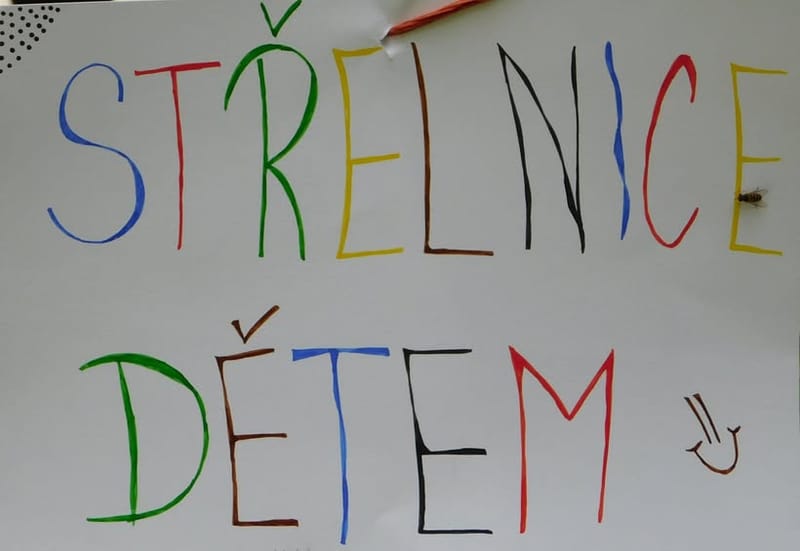 STŘELNICE
DĚTEM